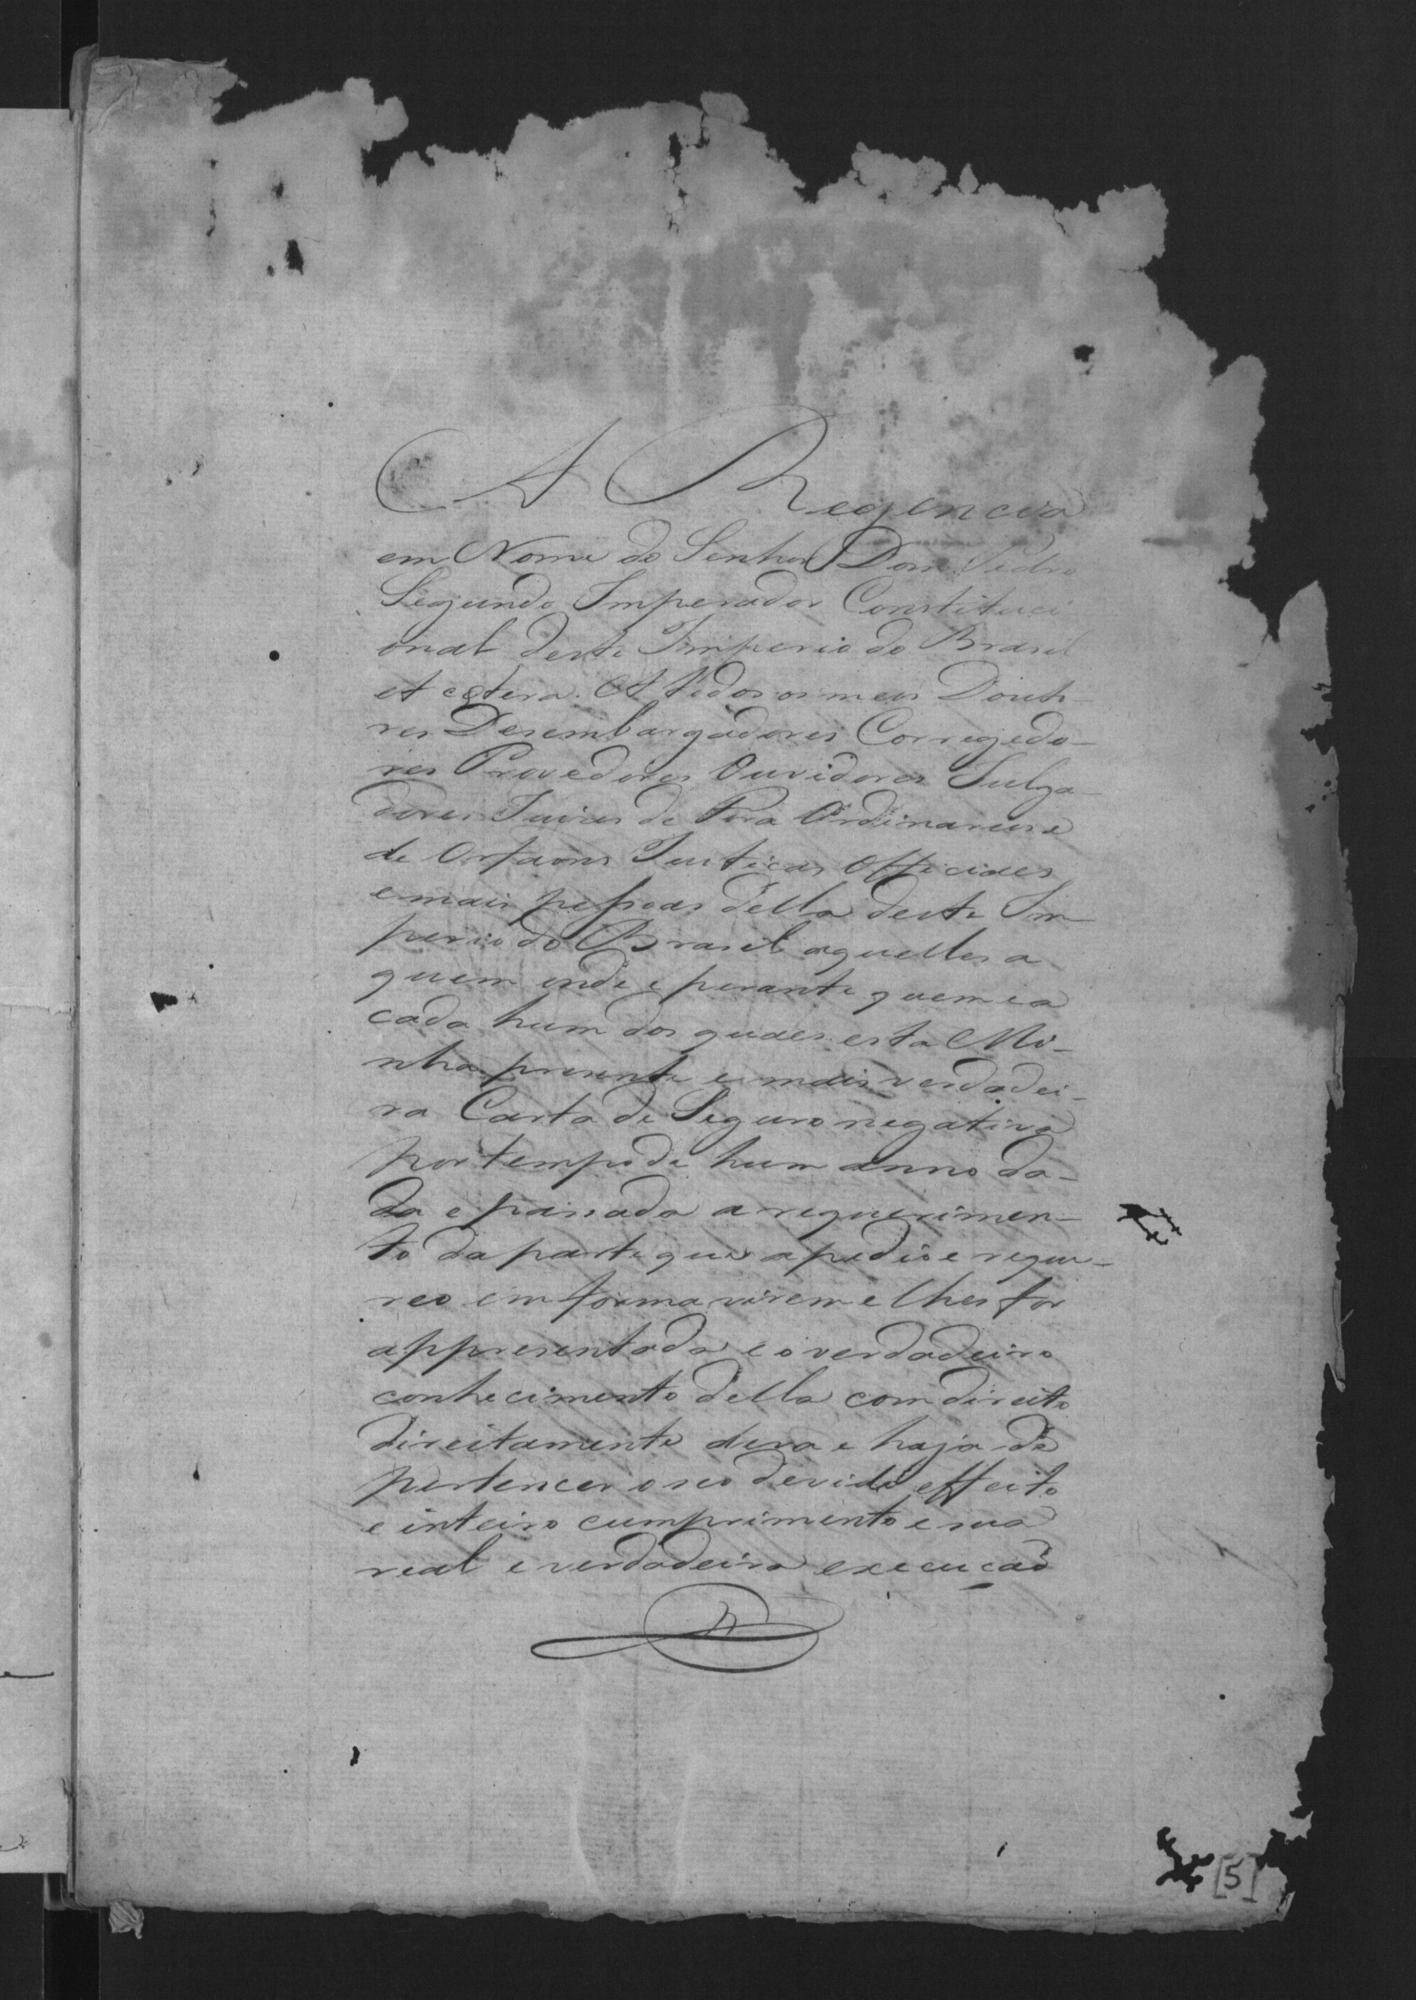 A Regencia
em Nome do Senhor Dom Pedro
Segundo Imperador Constituci
onal deste Imperio do Brasil
et cetera. A todos os meus Douto-
res Desembargadores Corregedo-
res Provedores Ouvidores Julga-
dores Juizes de Fora Ordinarios e
de Orfaons Justiças Officiaes
e mais pessoas della deste Im-
perio do Brasil aquelles a
quem onde e perante quem e a
cada hum dos quaes esta Mi-
nha presente e mais verdadei-
ra Carta de Seguro negativa
por tempo de hum anno da-
da e passada a requerimen-
to da parte que a pedio e reque-
reo em forma virem e lhes for
appresentada e o verdadeiro
conhecimento della com direito
direitamente deva e haja de
pertencer o seo devido effeito
e inteiro cumprimento e sua
real e verdadeira execução
[5]